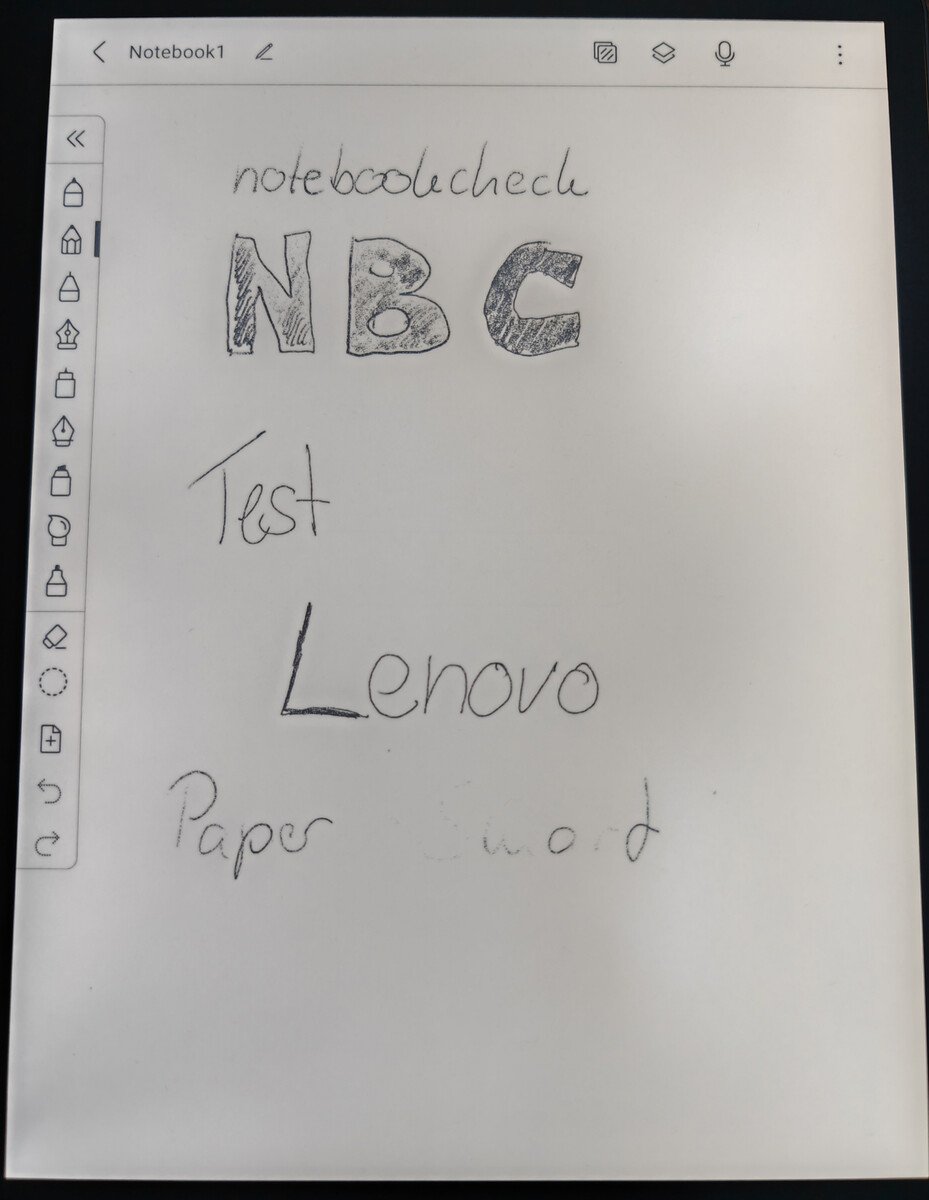 Notebook1
notebookcheck
NBC
Test
Lenovo
Paper